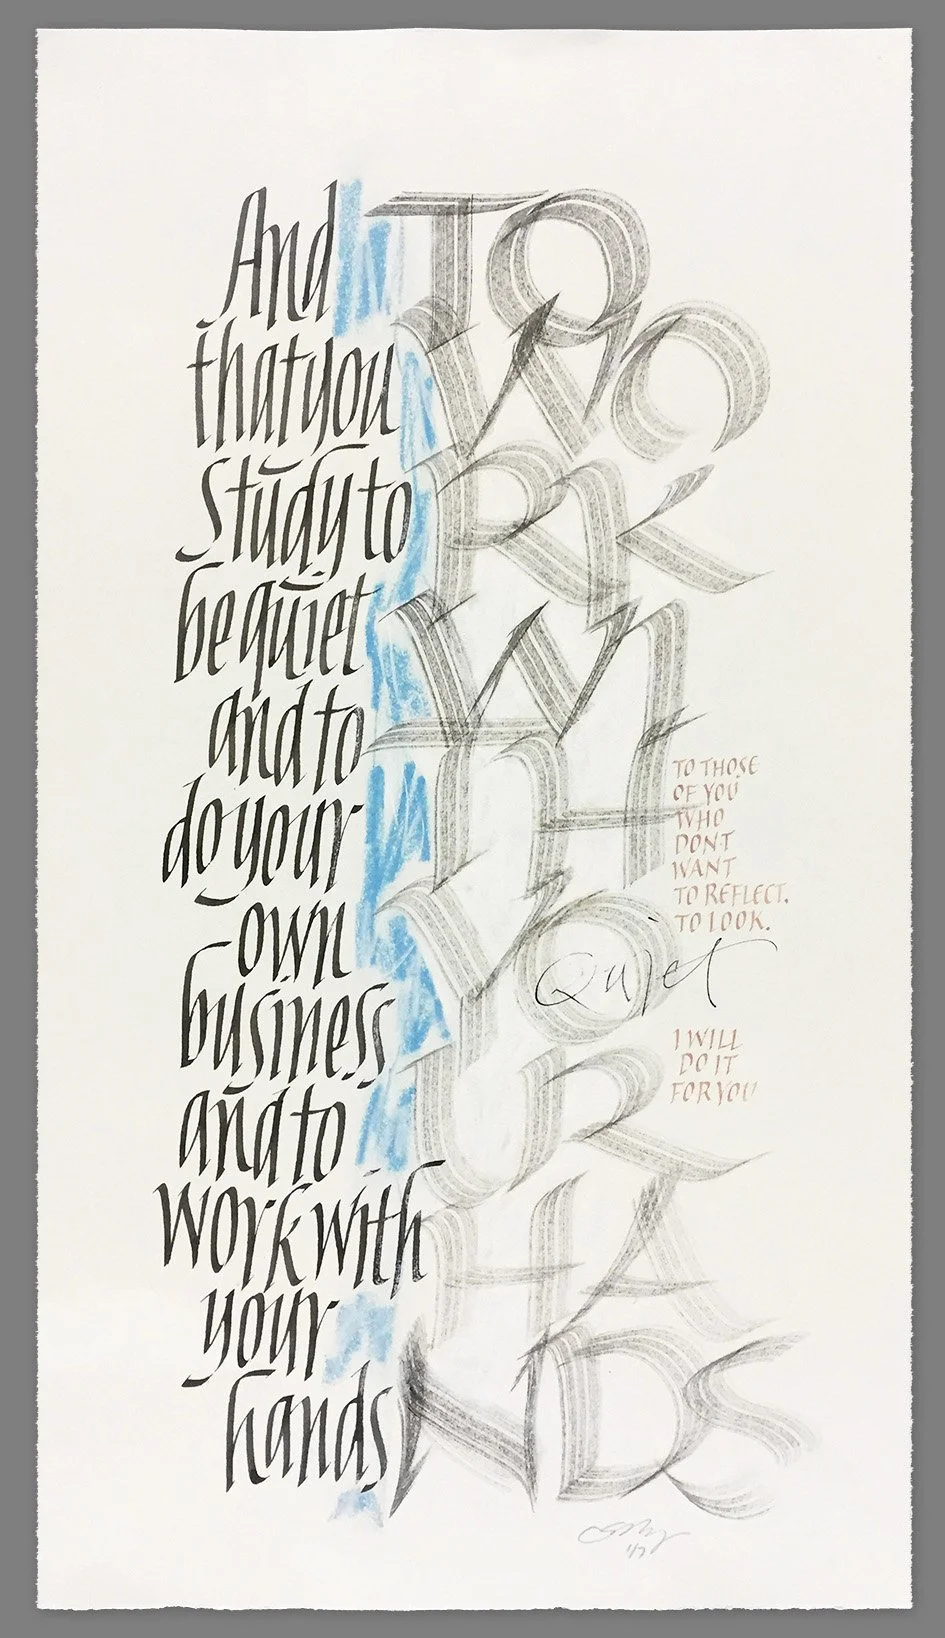 And
that you
Study to
be quiet
and to
do your
own
business
and to
work with
your
hands
TO
WO
RK
WI
TH
YO
UR
HA
NDS
TO THOSE
OF YOU
WHO
DONT
WANT
TO REFLECT.
TO LOOK.
Quiet
I WILL
DO IT
FOR YOU
1/7